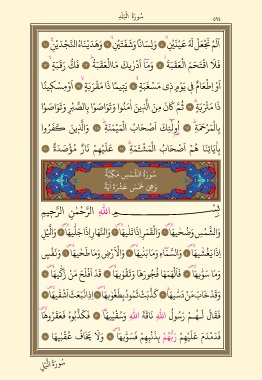 سُورَةُ الْبَلَدِ ٥٩٤
اَلَمْ نَجْعَلْ لَهُ عَيْنَيْنِۙ وَلِسَانًا وَشَفَتَيْنِۙ وَهَدَيْنَاهُ النَّجْدَيْنِۚ
فَلَا اقْتَحَمَ الْعَقَبَةَۘ وَمَٓا اَدْرٰيكَ مَا الْعَقَبَةُۜ فَكُّ رَقَبَةٍۙ
اَوْ اِطْعَامٌ فِي يَوْمٍ ذِي مَسْغَبَةٍۙ يَتِيمًا ذَا مَقْرَبَةٍۙ اَوْ مِسْكِينًا
ذَا مَتْرَبَةٍۜ ثُمَّ كَانَ مِنَ الَّذِينَ اٰمَنُوا وَتَوَاصَوْا بِالصَّبْرِ وَتَوَاصَوْا
بِالْمَرْحَمَةِۜ اُو۬لٰٓئِكَ اَصْحَابُ الْمَيْمَنَةِۜ وَالَّذِينَ كَفَرُوا
بِاٰيَاتِنَا هُمْ اَصْحَابُ الْمَشْـَٔمَةِۜ عَلَيْهِمْ نَارٌ مُؤْصَدَةٌ
سُورَةُ الشَّمْسِ مَكِّيَّةٌ
وَهِيَ خَمْسَ عَشْرَةَ اٰيَةً
بِسْمِ اللّٰهِ الرَّحْمٰنِ الرَّحِيمِ
وَالشَّمْسِ وَضُحٰيهَاۙ وَالْقَمَرِ اِذَا تَلٰيهَاۙ وَالنَّهَارِ اِذَا جَلّٰيهَاۙ وَالَّيْلِ
اِذَا يَغْشٰيهَاۙ وَالسَّمَٓاءِ وَمَا بَنٰيهَاۙ وَالْاَرْضِ وَمَا طَحٰيهَاۙ وَنَفْسٍ
وَمَا سَوّٰيهَاۙ فَاَلْهَمَهَا فُجُورَهَا وَتَقْوٰيهَاۙ قَدْ اَفْلَحَ مَنْ زَكّٰيهَاۙ
وَقَدْ خَابَ مَنْ دَسّٰيهَاۜ كَذَّبَتْ ثَمُودُ بِطَغْوٰيهَاۙ اِذِ انْبَعَثَ اَشْقٰيهَاۙ
فَقَالَ لَهُمْ رَسُولُ اللّٰهِ نَاقَةَ اللّٰهِ وَسُقْيٰيهَاۜ فَكَذَّبُوهُ فَعَقَرُوهَاۙ
فَدَمْدَمَ عَلَيْهِمْ رَبُّهُمْ بِذَنْبِهِمْ فَسَوّٰيهَاۙ وَلَا يَخَافُ عُقْبٰيهَا
سُورَةُ الَّيْلِ